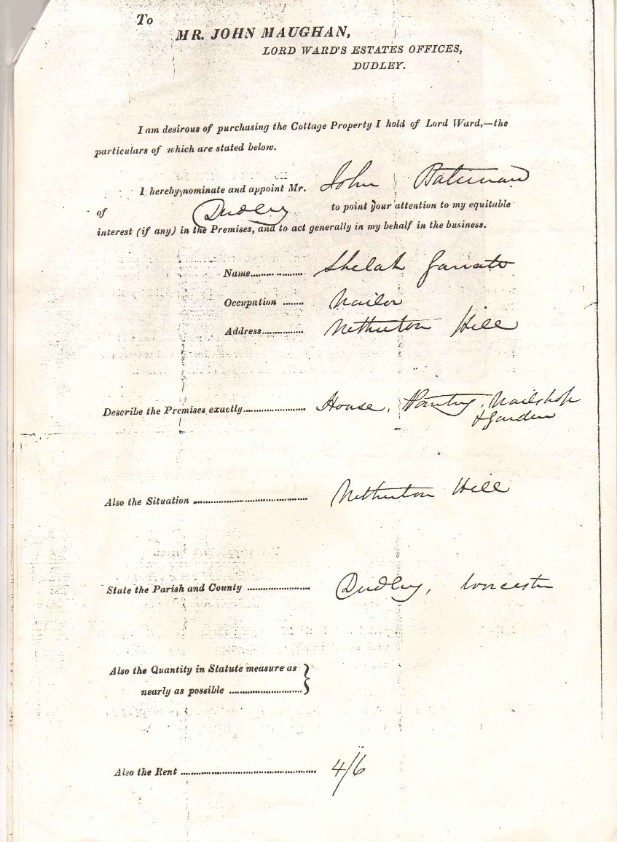 To
MR. JOHN MAUGHAN,
LORD WARD'S ESTATES OFFICES,
DUDLEY.
I am desirous of purchasing the Cottage Property I hold of Lord Ward,—the
particulars of which are stated below.
I hereby nominate and appoint Mr. John Bateman
of Dudley to point your attention to my equitable
interest (if any) in the Premises, and to act generally in my behalf in the business.
Name.................. Shelah
Occupation ....... Nailor
Address.............. Netherton Hill
Describe the Premises exactly..................... House, Pantry, Nailshop
& Garden
Also the Situation ..................................... Netherton Hill
State the Parish and County ..................... Dudley, Worcester
Also the Quantity in Statute measure as }
nearly as possible ........................
Also the Rent ............................................ 4/6